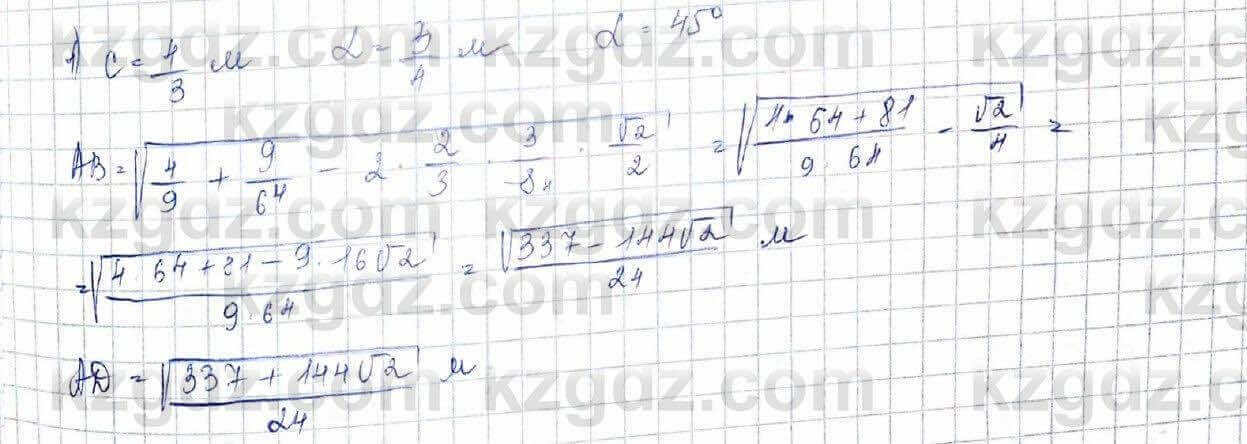 1) c = 4/3 м   d = 3/4 м   α = 45°
AB = √(4/9 + 9/64 - 2 · 2/3 · 3/8 · √2/2) = √((4 · 64 + 81)/(9 · 64) - √2/4) =
= √((4 · 64 + 81 - 9 · 16√2)/(9 · 64)) = √(337 - 144√2)/24 м
AD = √(337 + 144√2)/24 м
kzgdz.com